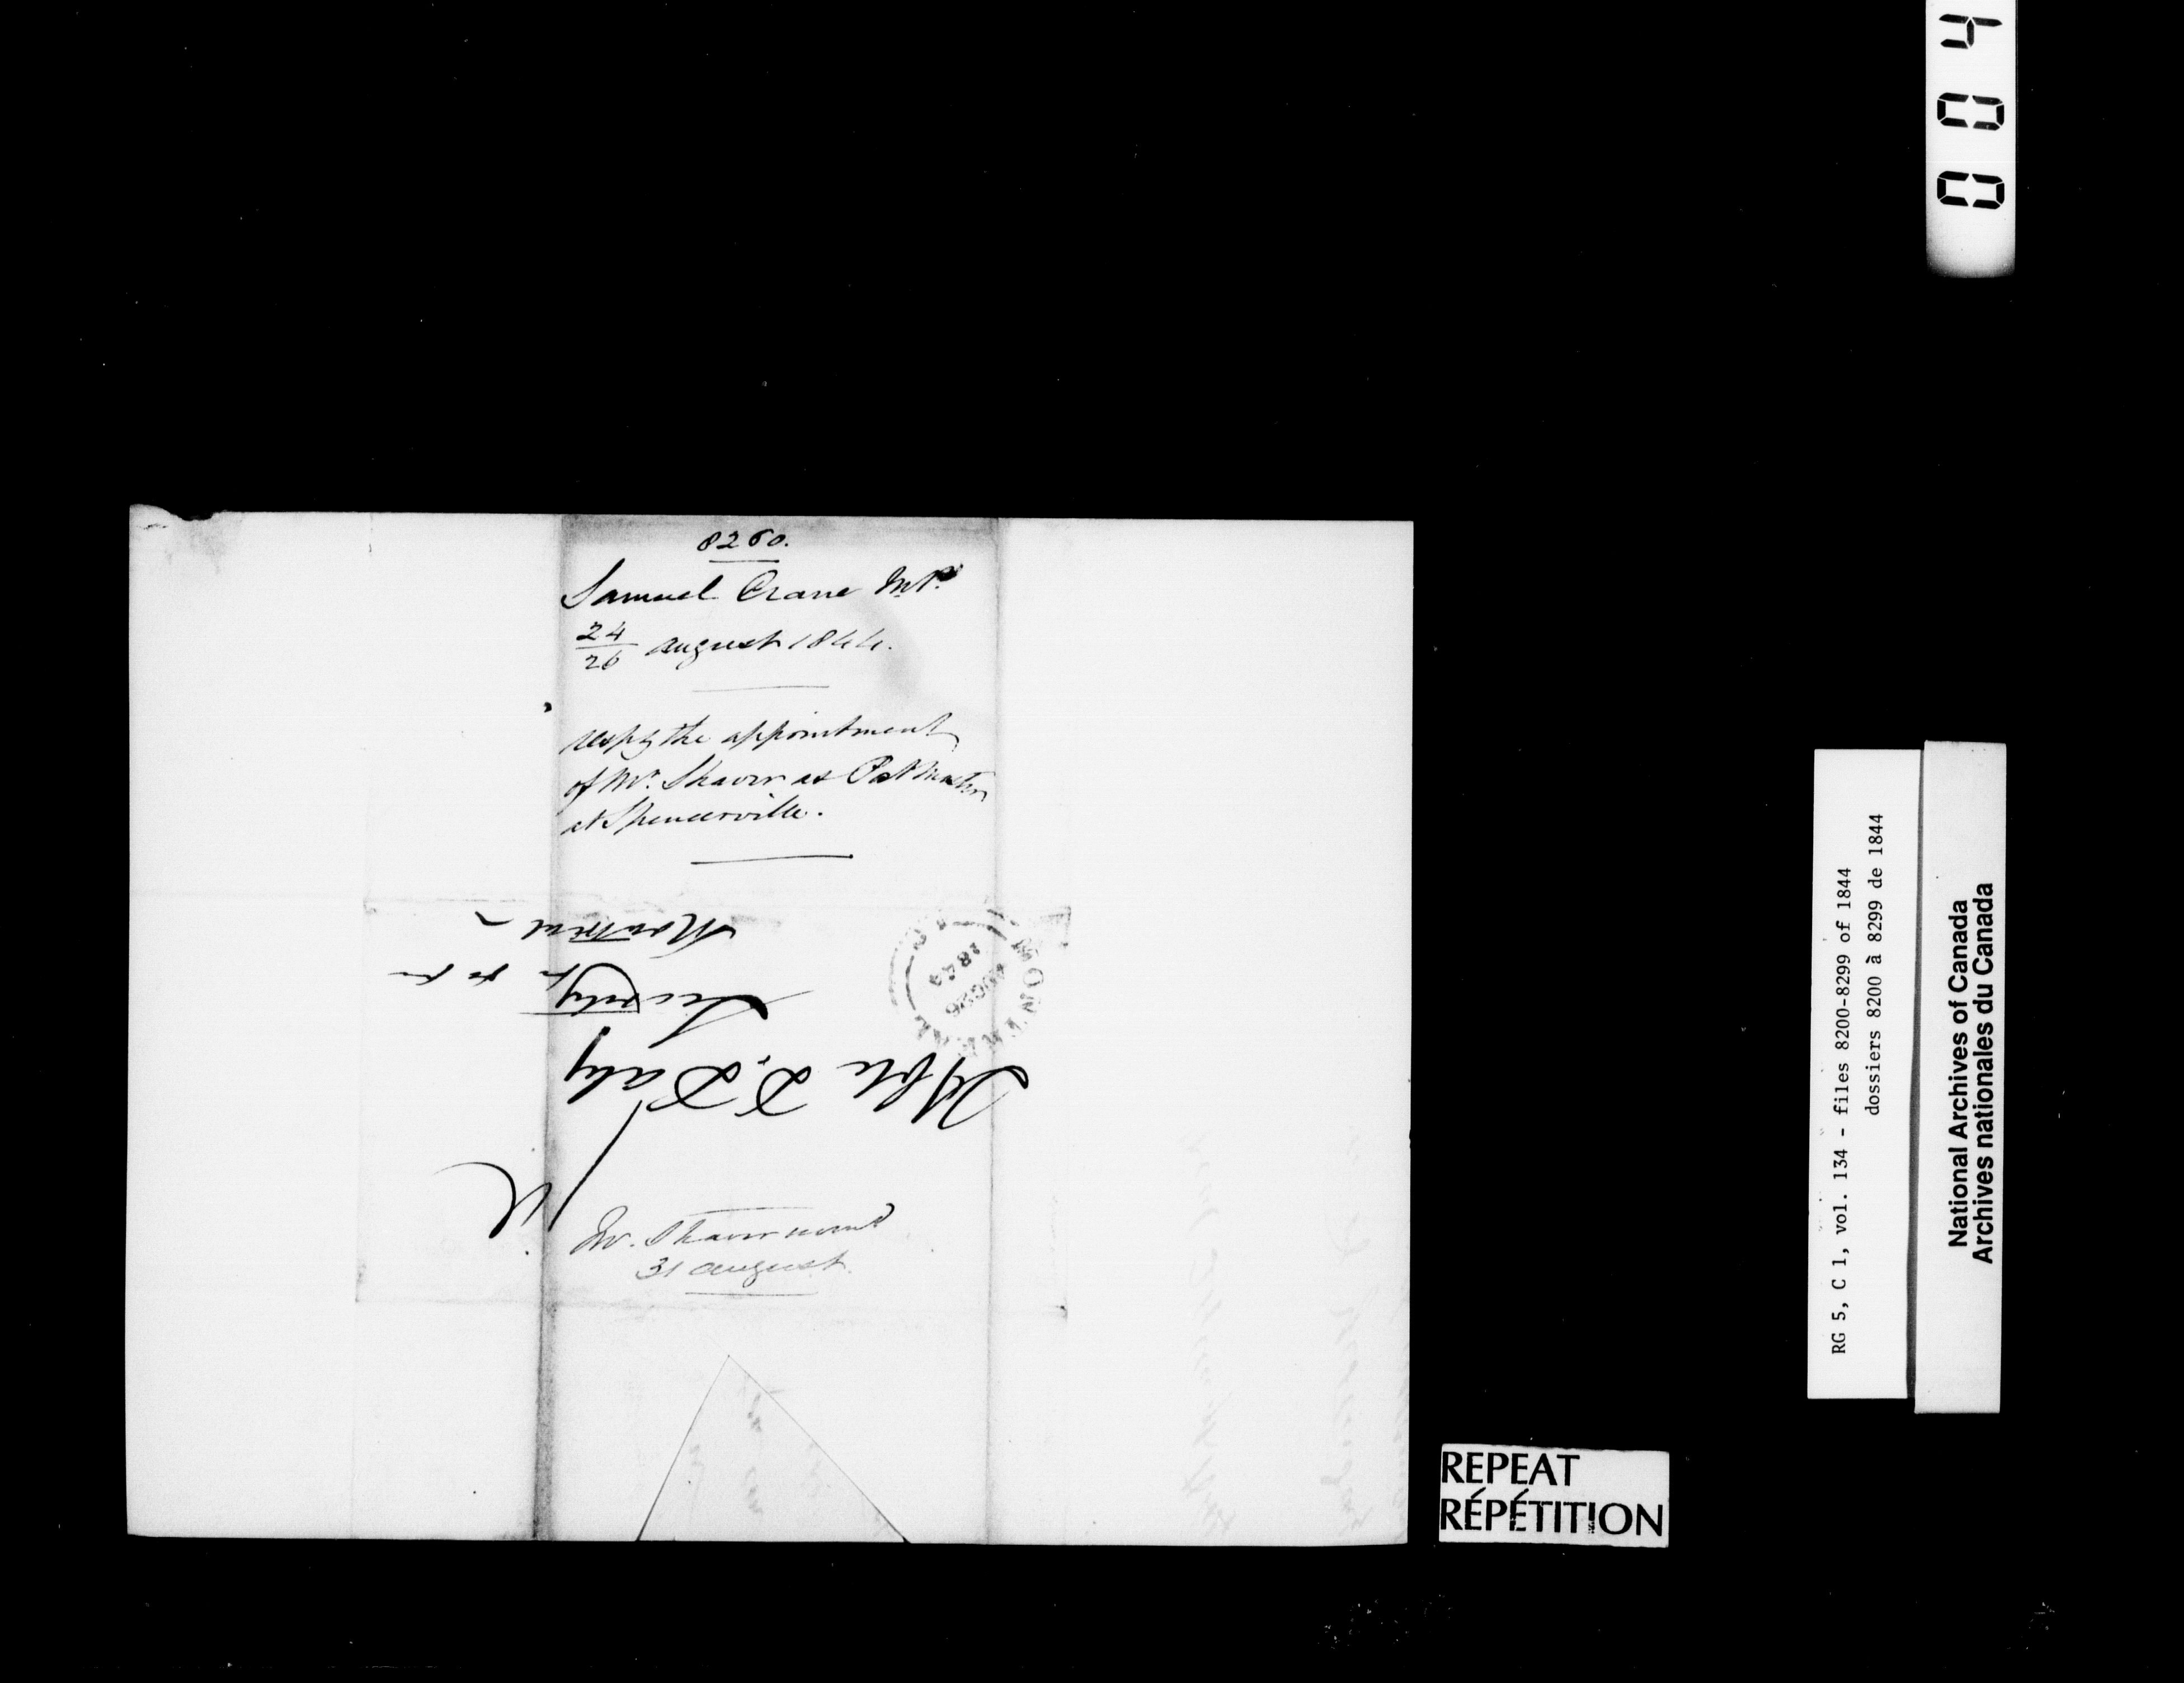 8260.
Samuel Crane MP.
24
26 august 1844.
respg the appointment
of Mr. Shaver as Post Master
at Spencerville.
Honble D. Daly
Secretary &c &c &c
Montreal
MONTREAL
AUG 26
1844
Mr. Shaver
31 august
REPEAT
RÉPÉTITION
RG 5, C 1, vol. 134 - files 8200-8299 of 1844
dossiers 8200 à 8299 de 1844
National Archives of Canada
Archives nationales du Canada
0 0 4